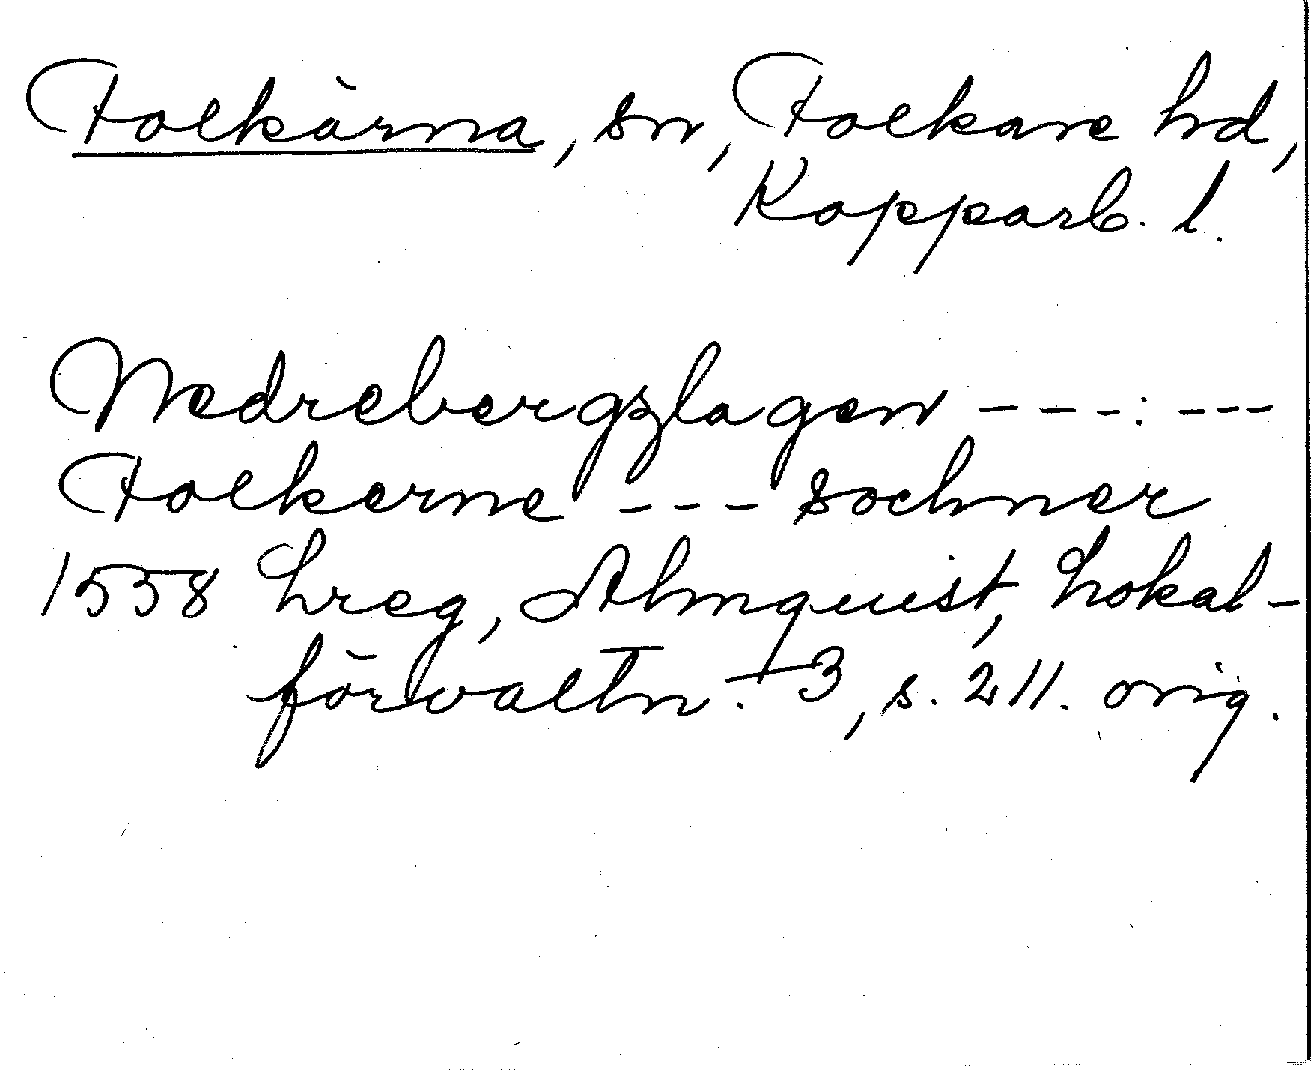 Folkärna, sn, Folkare hd,
Kopparb. l.
Nedrebergzlagen ---:---
Folkerne --- sochner
1558 Lreg, Almquist, Lokal-
förvaltn. 3, s. 211. orig.